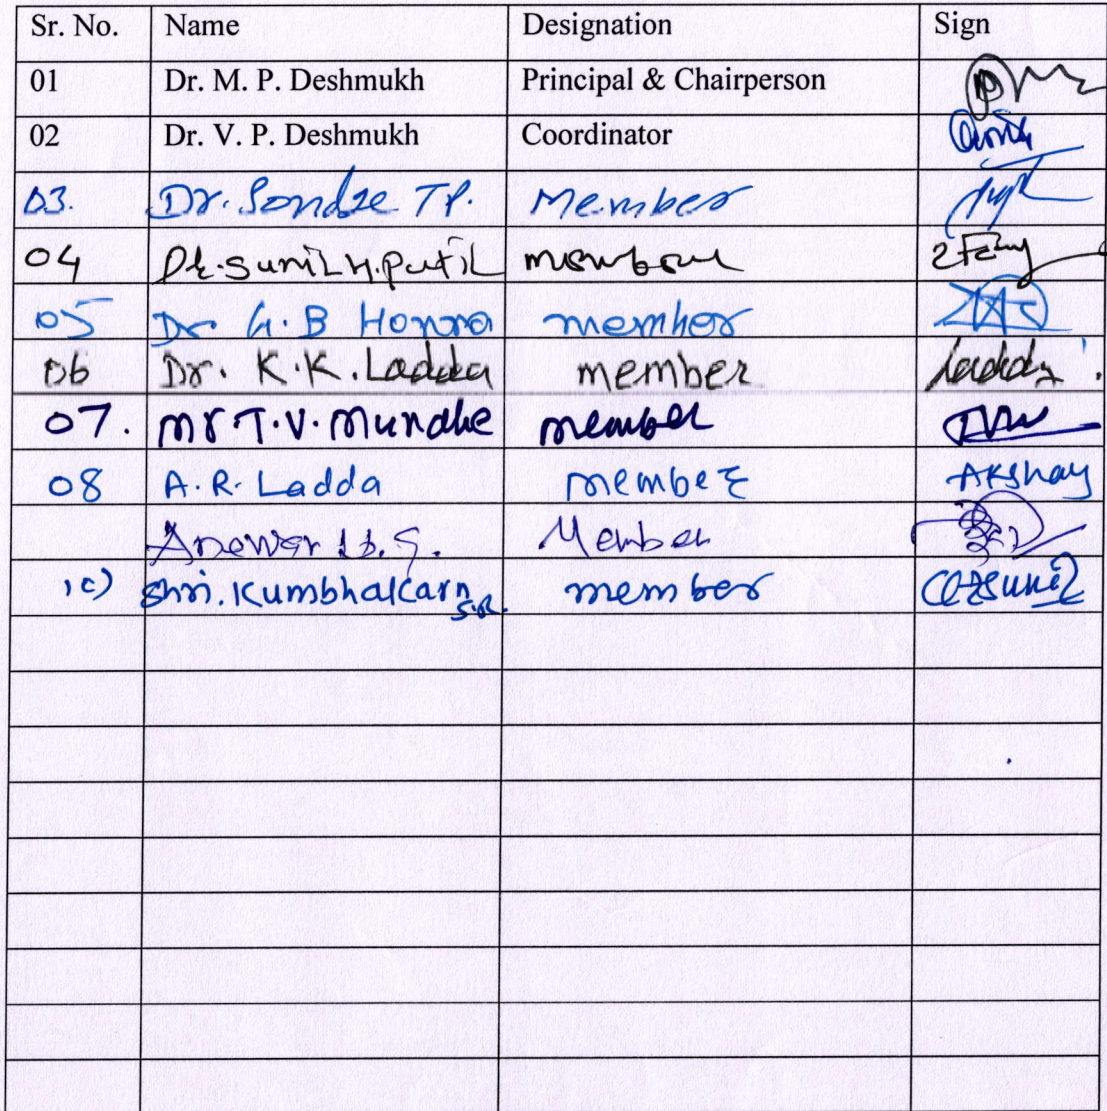 Sr. No. Name Designation Sign
01 Dr. M. P. Deshmukh Principal & Chairperson
02 Dr. V. P. Deshmukh Coordinator
03. Dr. Sondge T.P. Member
04 Dr. Sunil H. Patil member
05 Dr G. B Honna member
06 Dr. K.K. Ladda member Ladda
07. Mr T.V. Mundhe member TVM
08 A. R. Ladda member Akshay
Member
10) Shri. Kumbhalkarn S.R. member